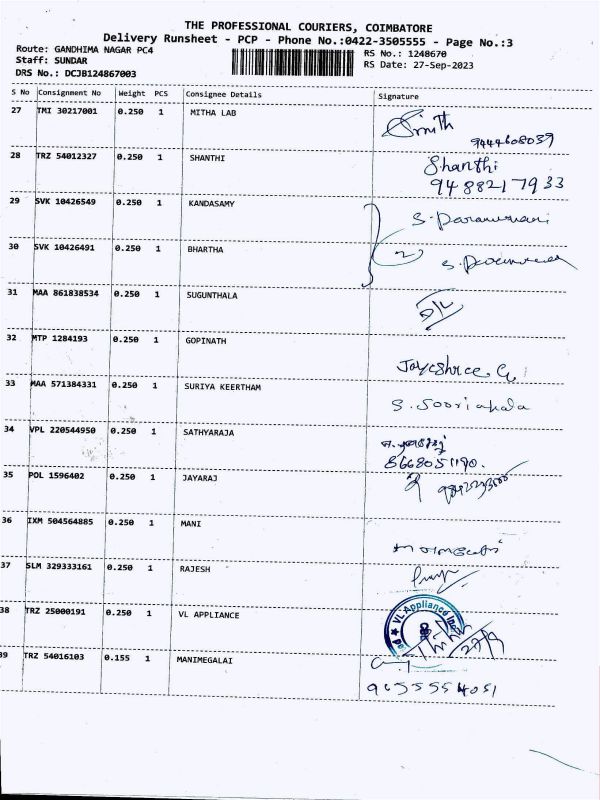 THE PROFESSIONAL COURIERS, COIMBATORE
Delivery Runsheet - PCP - Phone No.:0422-3505555 - Page No.:3
Route: GANDHIMA NAGAR PC4 RS No.: 1248670
Staff: SUNDAR RS Date: 27-Sep-2023
DRS No.: DCJB124867003
S No Consignment No Weight PCS Consignee Details Signature
27 TMI 30217001 0.250 1 MITHA LAB Smith
9444608039
28 TRZ 54012327 0.250 1 SHANTHI Shanthi
9488217933
29 SVK 10426549 0.250 1 KANDASAMY
30 SVK 10426491 0.250 1 BHARTHA 2
31 MAA 861838534 0.250 1 SUGUNTHALA D/L
32 MTP 1284193 0.250 1 GOPINATH Jayashree. G
33 MAA 571384331 0.250 1 SURIYA KEERTHAM
34 VPL 220544950 0.250 1 SATHYARAJA
8668051190.
35 POL 1596402 0.250 1 JAYARAJ
36 IXM 504564885 0.250 1 MANI
37 SLM 329333161 0.250 1 RAJESH
38 TRZ 25000191 0.250 1 VL APPLIANCE VL Appliance
39 TRZ 54016103 0.155 1 MANIMEGALAI
9655554051